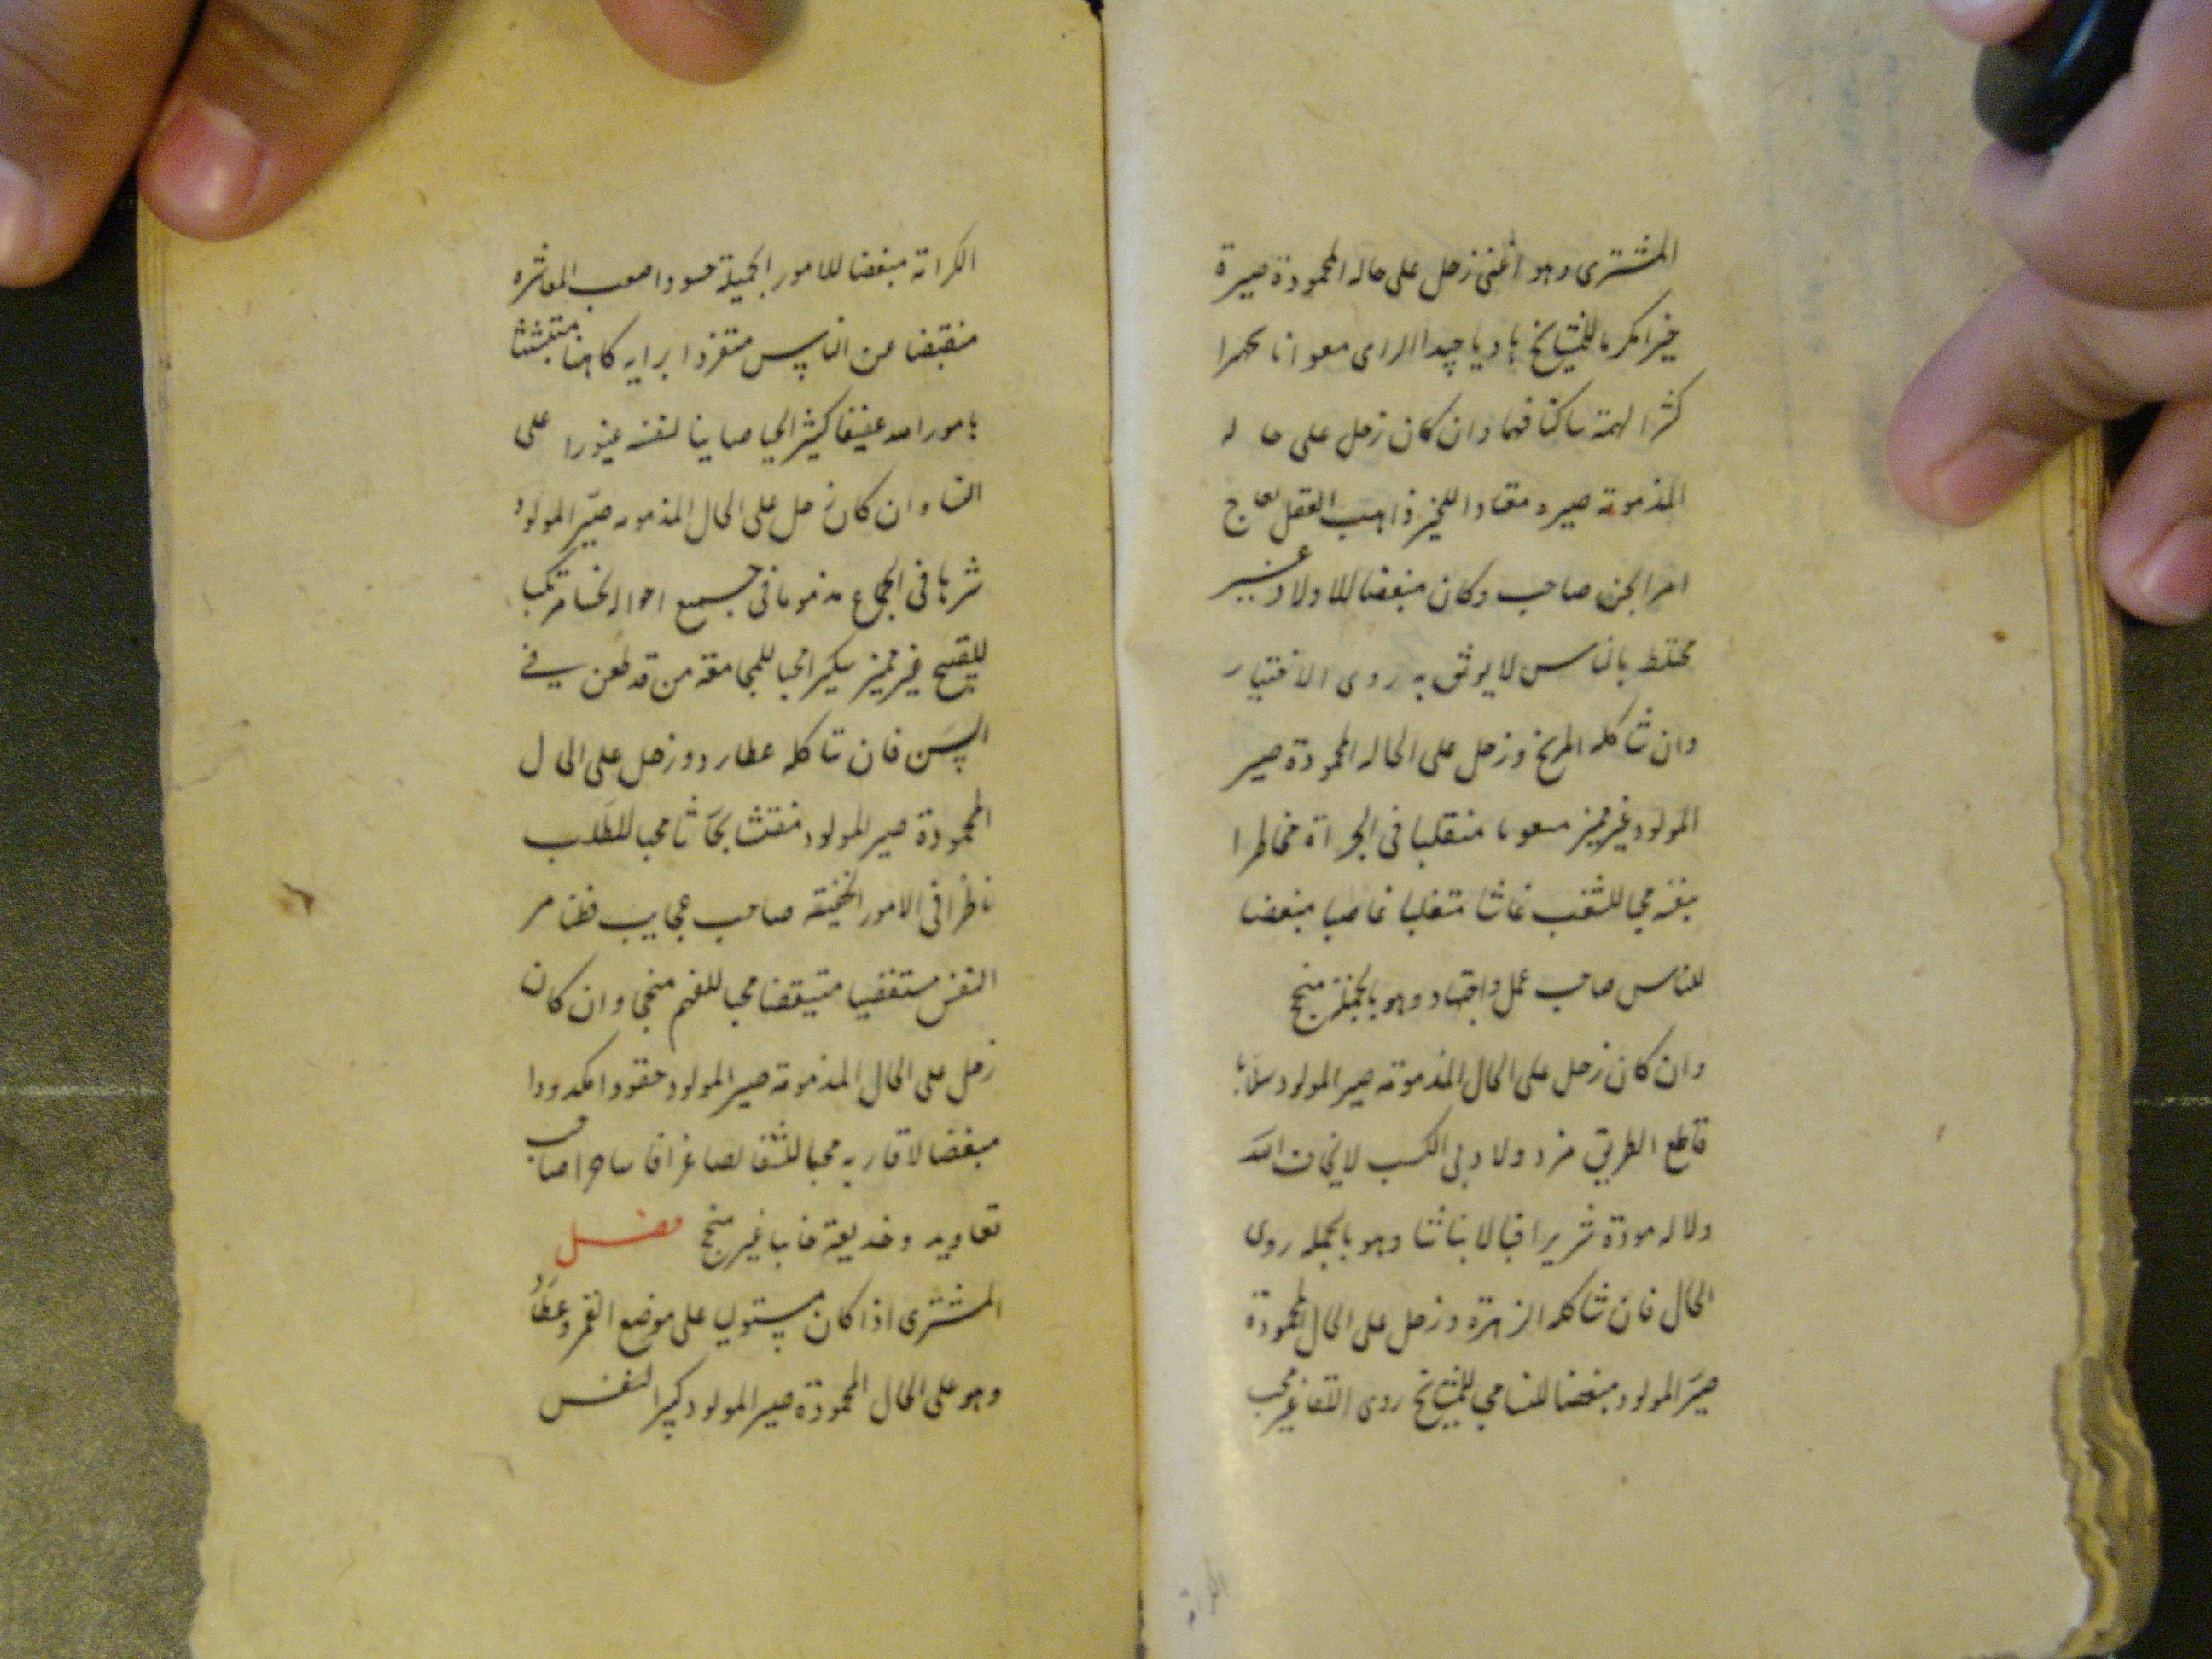 المشترى وهو اعنى زحل على حاله المحمودة صيرة
خيرا مكرما للمشايخ هاديا جيد الراى معوانا
كثرا لهمة ساكنا فهما وان كان زحل على حا له
المذمومة صيره معادا للخير ذاهب العقل
امر الجن صاحب وكان مبغضا للاولاد غير
مختلط بالناس لا يوثق به روى الاختيار
وان شاكله المريخ وزحل على الحاله المحمودة صير
المولود غير مميز منقلبا فى الجراة مخاطرا
محبا للشغب غاشا متغلبا غاصبا مبغضا
للناس صاحب عمل واجتهاد وهو بالجملة منجح
وان كان زحل على الحال المذمومة صير المولود سلابا
قاطع الطريق مزدولا دنى الكسب لا يخاف الله
ولا له مودة شريرا وهو بالجمله روى
الحال فان شاكله الزهرة وزحل على الحال المحمودة
صير المولود مبغضا للنسا محبا للمشايخ روى اللقا غير محب
الكراة
الكراتة مبغضا للامور الجميلة حسودا صعب المعاشره
منقبضا عن الناس متفردا برايه كاهنا
بامور الله عفيفا كثير الحيا صاينا لنفسه غيورا على
النسا وان كان زحل على الحال المذمومه صير المولود
شرها فى الجماع مذموما فى جميع احواله مرتكبا
للقبيح غير مميز سكيرا محبا للمجامعة من قد طعن فى
السن فان شاكله عطارد وزحل على الحا ل
المحمودة صير المولود مفتشا بحاثا محبا للطلب
ناظرا فى الامور الخفيفه صاحب عجايب فطنا مر
النفس مستقضيا متيقضا محبا للفهم منجحا وان كان
زحل على الحال المذمومة صير المولود حقودا مكدودا
مبغضا لاقاربه محبا للشقا ساحرا صاحب
تعاويد وخديعة خايبا غير منجح فصل
المشترى اذا كان مستولى على موضع القمر وعطارد
وهو على الحال المحمودة صير المولود كبير النفس